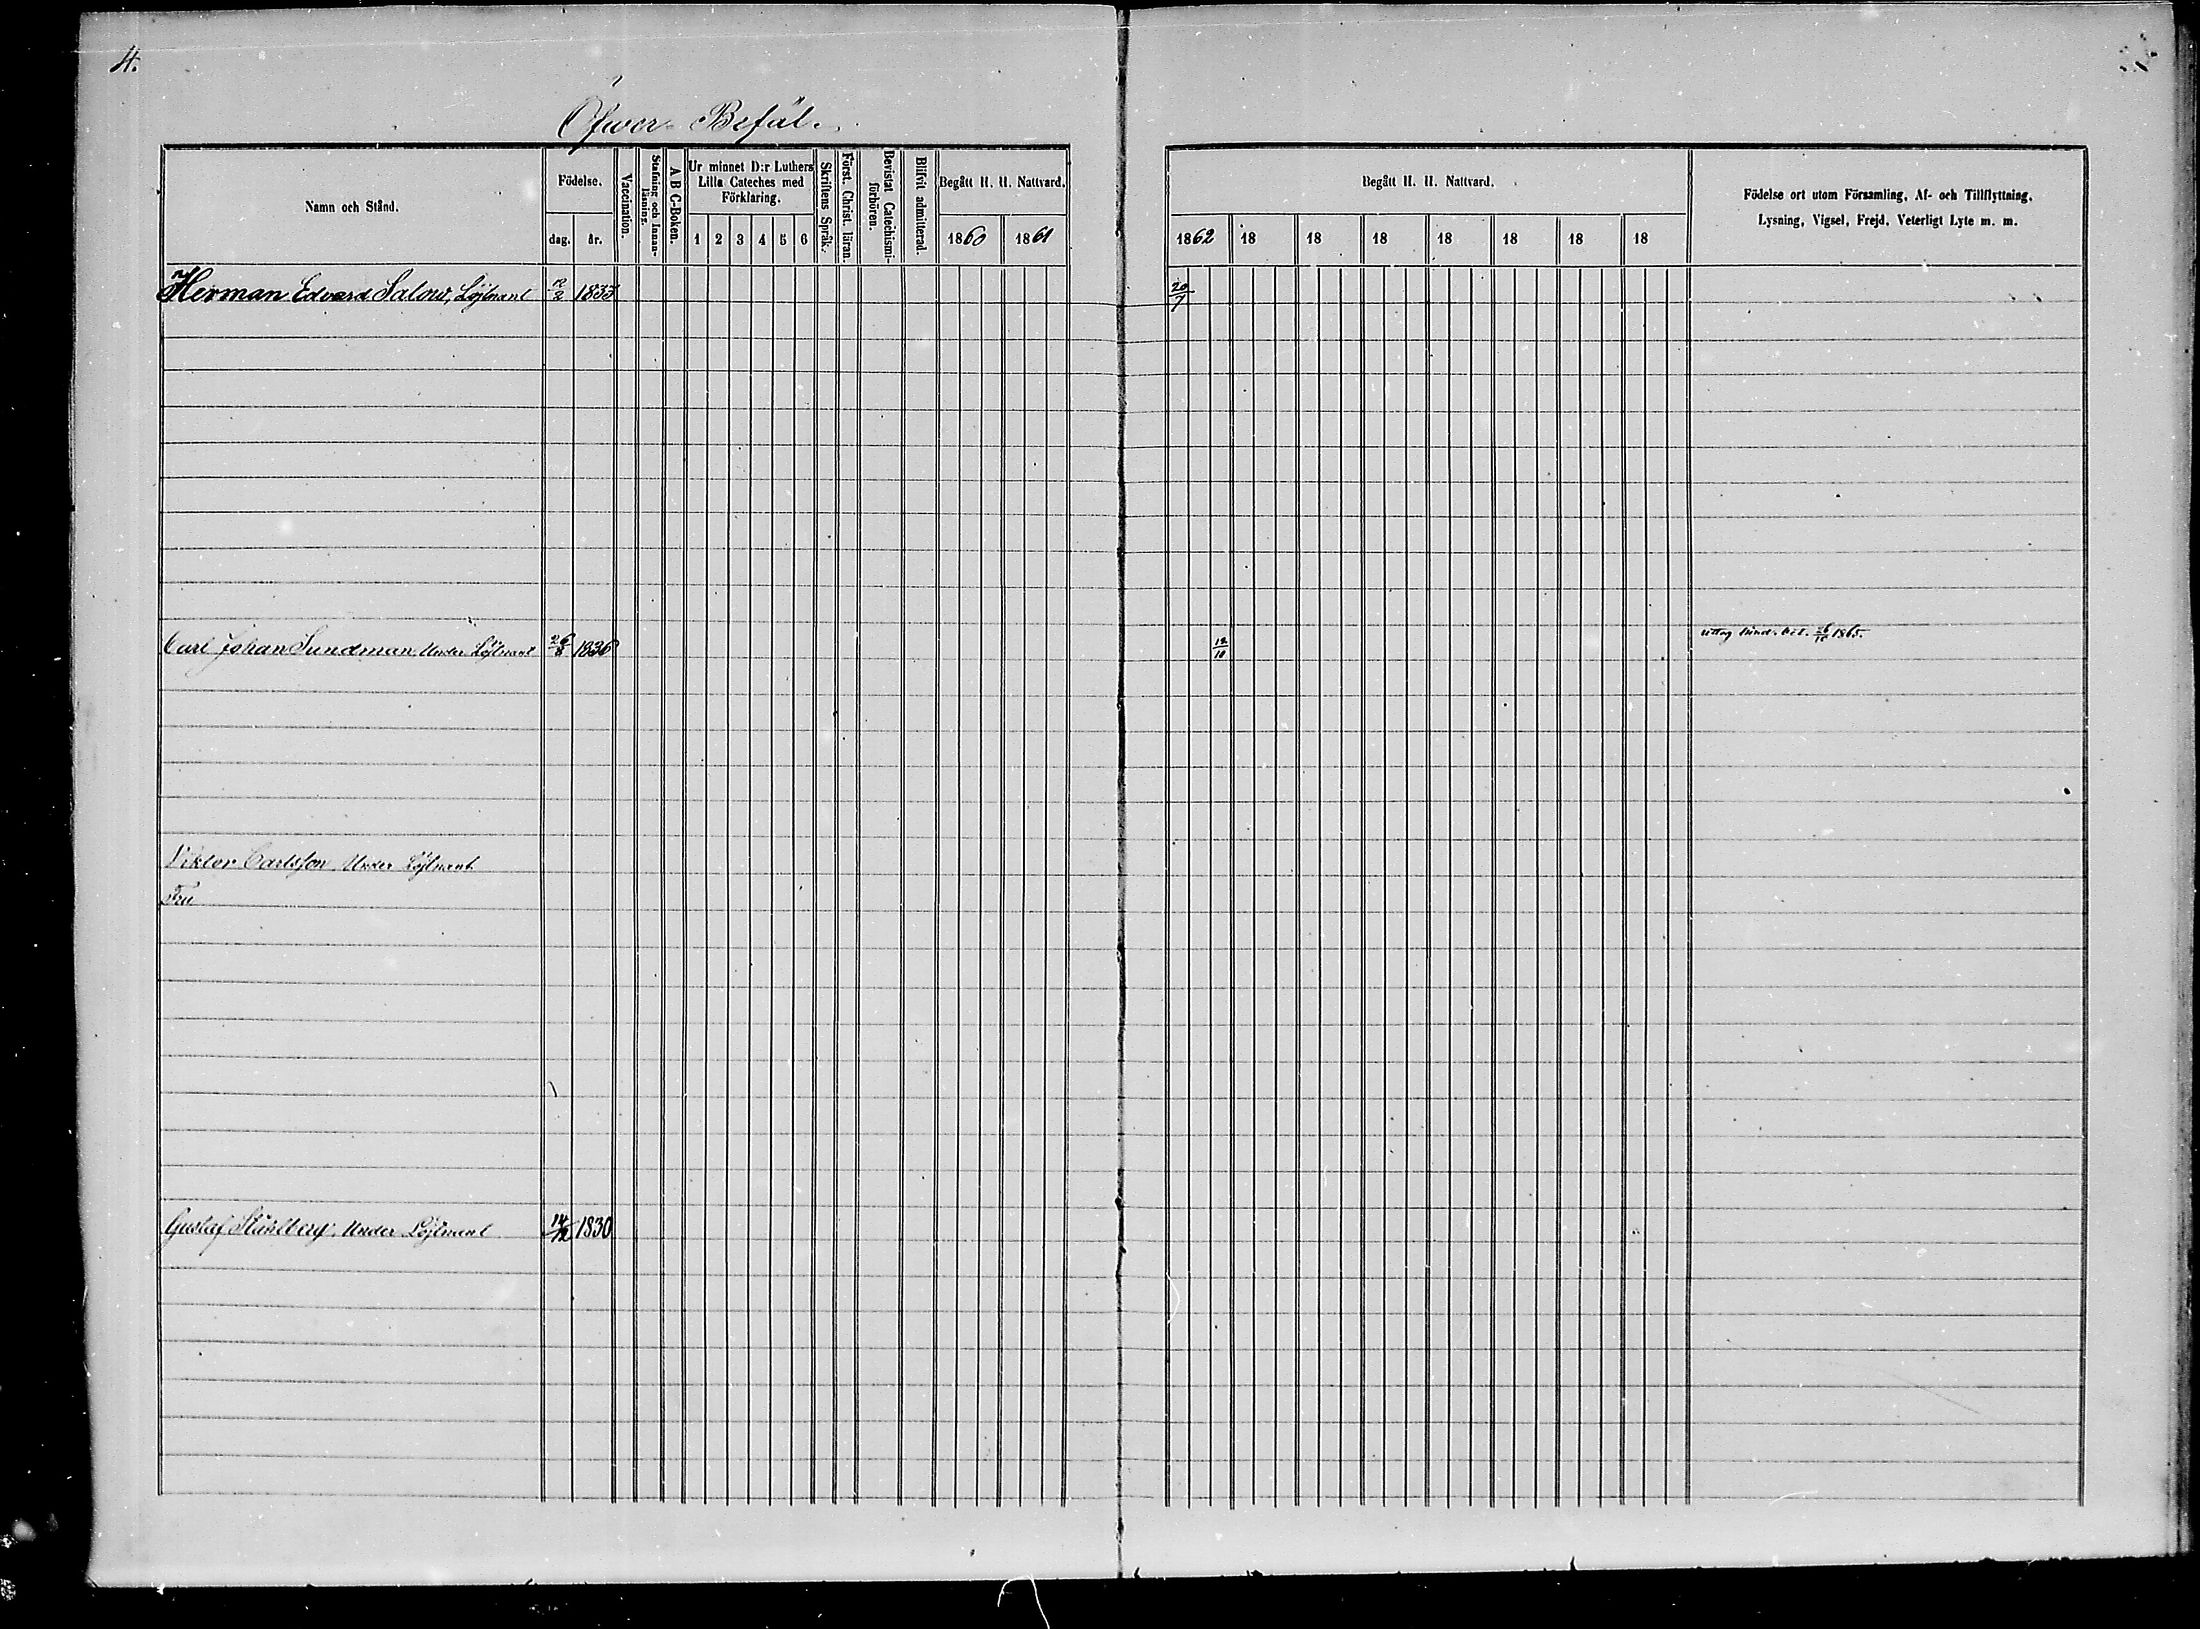 4.
Öfwer-Befäl.
Namn och Stånd.
Födelse.
dag.
år.
Vaccination.
Stafning och Innan-läsning.
A B C-Boken.
Ur minnet D:r Luthers
Lilla Cateches med
Förklaring.
1 2 3 4 5 6
Skriftens Språk.
Först. Christ. läran.
Bevistat Catechismi-förhören.
Blifvit admitterad.
Begått H. H. Nattvard.
1860 1861
Begått H. H. Nattvard.
1862 18 18 18 18 18 18 18
Födelse ort utom Församling, Af- och Tillflyttning,
Lysning, Vigsel, Frejd, Veterligt Lyte m. m.
Herman Edvard Salow, Löjtnant 12/2 1833 20/7
Carl Johan Sundman Under Löjtnant 26/8 1836 12/10 uttog 1865.
Viktor Carlsson, Under Löjtnant
Fru
Gustaf Ståhlberg, Under Löjtnant 14/12 1830